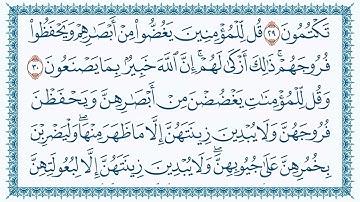 تَكْتُمُونَ ٢٩ قُل لِّلْمُؤْمِنِينَ يَغُضُّوا۟ مِنْ أَبْصَٰرِهِمْ وَيَحْفَظُوا۟
فُرُوجَهُمْ ۚ ذَٰلِكَ أَزْكَىٰ لَهُمْ ۗ إِنَّ ٱللَّهَ خَبِيرٌۢ بِمَا يَصْنَعُونَ ٣٠
وَقُل لِّلْمُؤْمِنَٰتِ يَغْضُضْنَ مِنْ أَبْصَٰرِهِنَّ وَيَحْفَظْنَ
فُرُوجَهُنَّ وَلَا يُبْدِينَ زِينَتَهُنَّ إِلَّا مَا ظَهَرَ مِنْهَا ۖ وَلْيَضْرِبْنَ
بِخُمُرِهِنَّ عَلَىٰ جُيُوبِهِنَّ ۖ وَلَا يُبْدِينَ زِينَتَهُنَّ إِلَّا لِبُعُولَتِهِنَّ